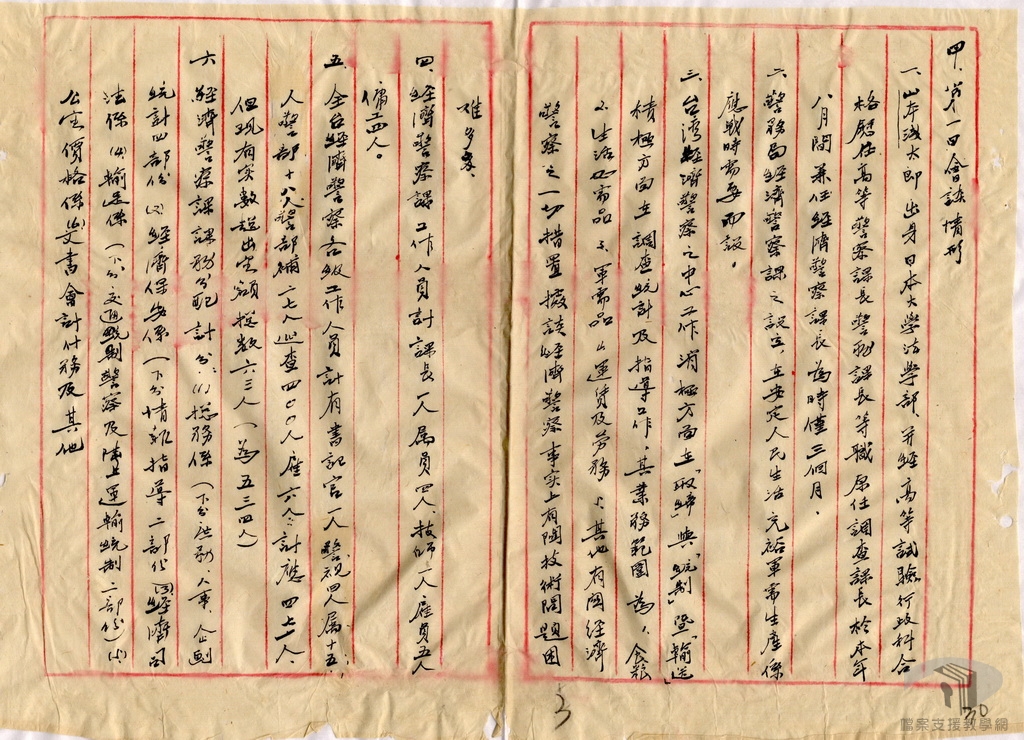 甲、第一回會談情形
一、山本淺太郎出身日本大學法學部并經高等試驗行政科合
格歷任高等警察課長警務課長等職原任調查課長於本年
八月間兼任經濟警察課長為時僅三個月。
二、警務局經濟警察課之設立在安定人民生活充裕軍需生產係
應戰時需要而設。
三、台灣經濟警察之中心工作消極方面在「取締」與「統制」暨「輸送」
積極方面在調查統計及指導工作。其業務範圍為1、食糧
2、生活必需品3、軍需品4、運賃及勞務5、其他有関經濟
警察之一切措置據談經濟警察事实上有関技術問題困
难多亲
四、經濟警察課工作人員計課長一人属員四人、技師一人雇員五人
傭工四人。
五、全台經濟警察各級工作人員計有書記官一人警視四人属十五
人警部十八人警部補二七人巡查四〇〇人雇六人計應四七一人、
但現有实數超出定額總數六三人(為五三四人)
六、經濟警察課課務分配計分:(1)総務係(下分法勅、人事、企劃
統計四部份(2)經濟保安係(下分情報指導二部份(3)經濟司
法係(4)輸送係(下分交通統制警察及陸上運輸統制二部份)(5)
公定價格係(6)文書會計什務及其他
3
30
檔案支援教學網